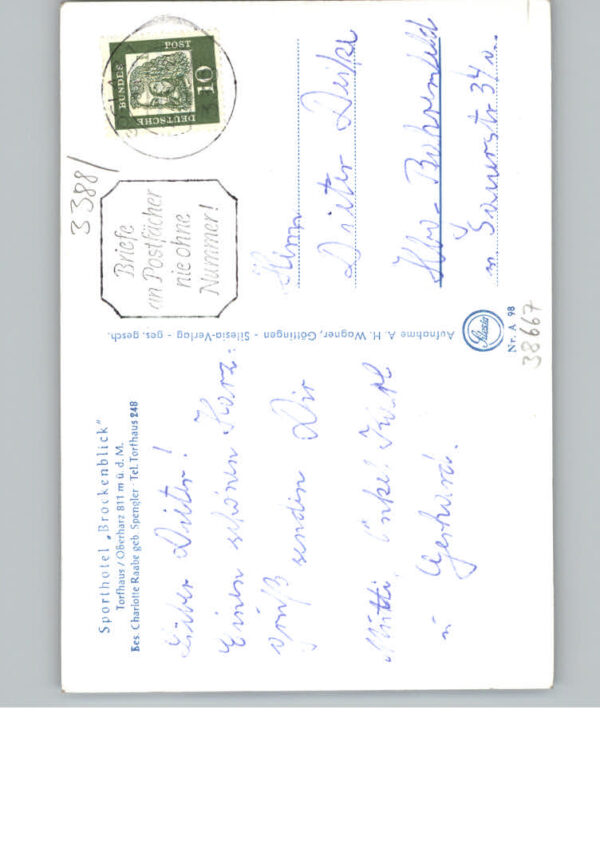 Sporthotel „Brockenblick"
Torfhaus / Oberharz 811 m ü. d. M.
Bes. Charlotte Raabe geb. Spengler · Tel. Torfhaus 248
Lieber Dieter!
Einen schönen Harz-
gruß senden Dir
Mutti, Onkel Karl
u Gerhard.
Aufnahme A. H. Wagner, Göttingen - Silesia-Verlag - ges. gesch.
Silesia
Nr. A 98
38667
3388/
Briefe
an Postfächer
nie ohne
Nummer!
DEUTSCHE
BUNDES
POST
10
Herrn
Dieter
Hbg-Bahrenfeld
34